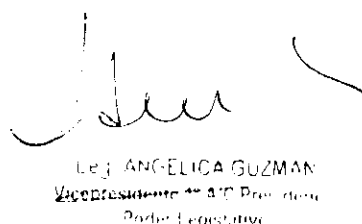 Leg. ANGELICA GUZMAN
Vicepresidente 1° A/C Presidencia
Poder Legislativo